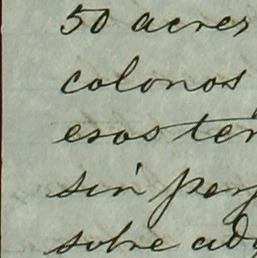 50 acres
colonos
esos ter
sin perj
sobre adq